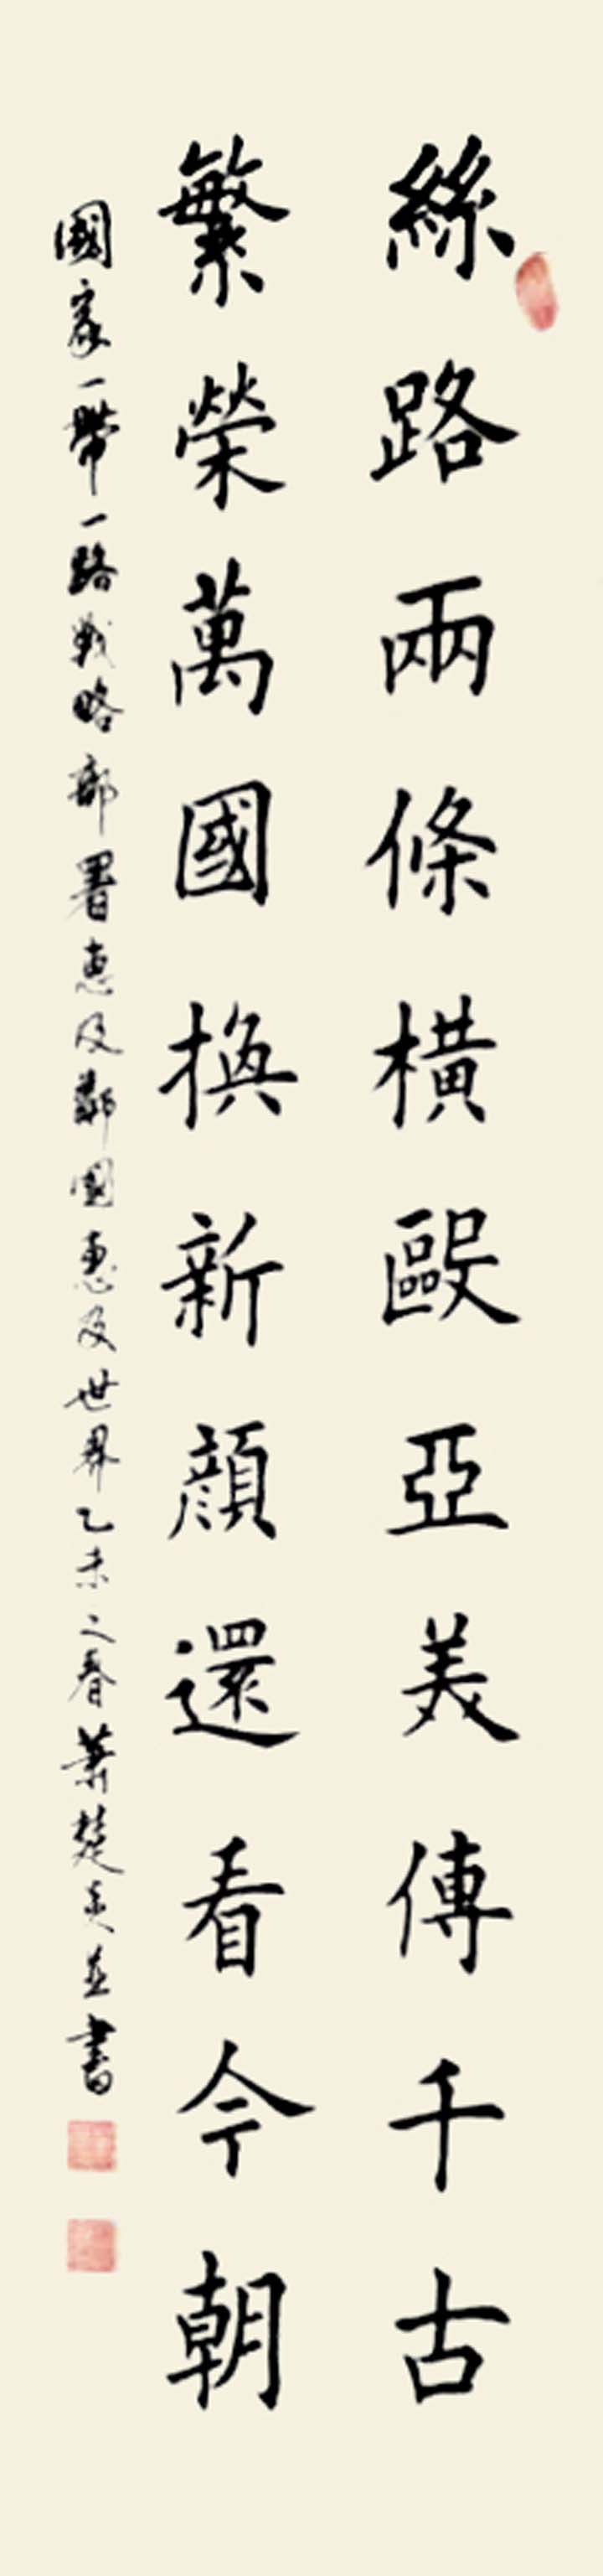 絲路兩條橫毆亞美傳千古
繁榮萬國換新顔還看今朝
國家一帶一路戰略部署惠及鄰國惠及世界乙未之春蕭楚炎並書